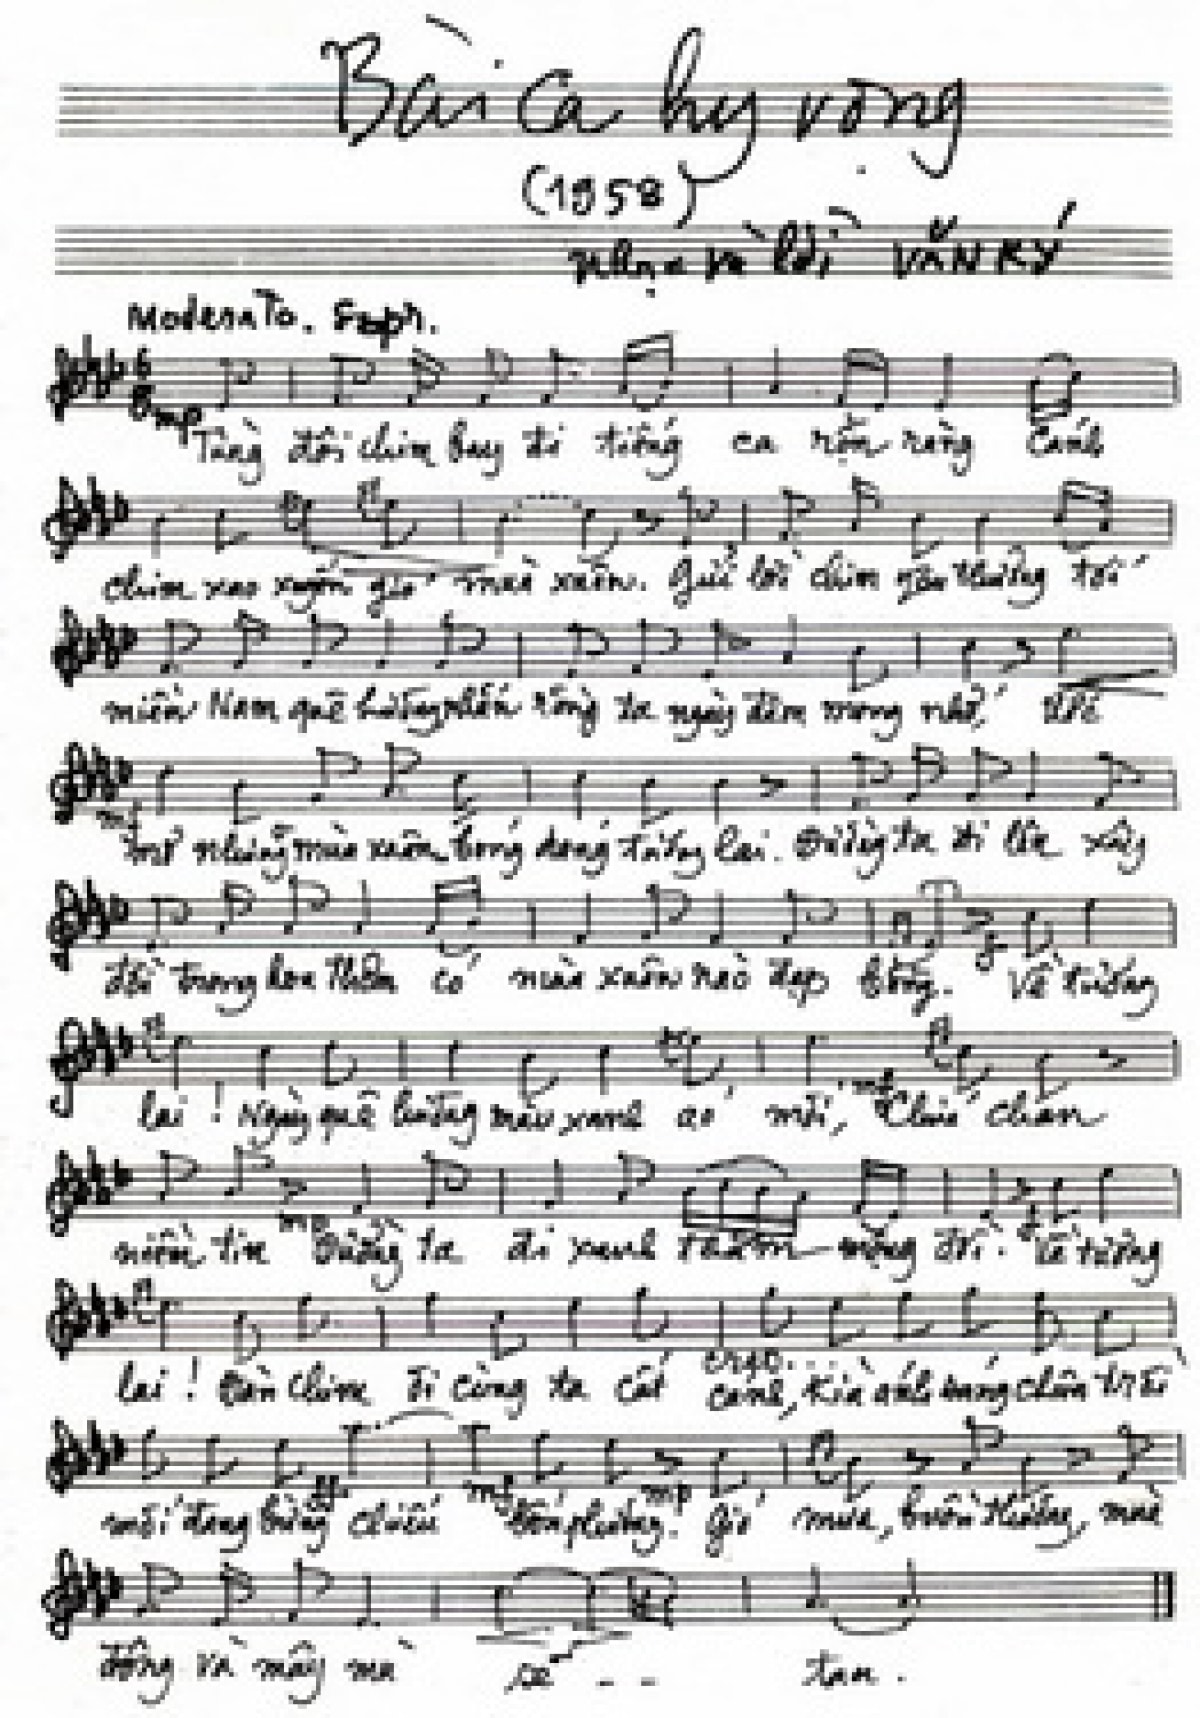 Bài ca hy vọng
(1958)
nhạc và lời VĂN KÝ
Moderato.
6
8 mp
Từng đôi chim bay đi tiếng ca rộn ràng Cánh
chim xao xuyến gió mùa xuân. Gửi lời chim yêu thương tới
miền Nam quê hương nhắn rằng ta ngày đêm mong nhớ, Ước
mf
mơ những mùa xuân bóng dáng tương lai. Đường ta đi lên xây
f
đời trong hoa thơm có mùa xuân nào đẹp bằng. Về tương
mf
lai! Ngày quê hương màu xanh áo mới, Chứa chan
mp f
niềm tin Đường ta đi xanh thắm mộng đời. Về tương
cresc.
lai! Đàn chim đi cùng ta cất cánh, Kìa ánh sáng chân trời
ff mf mp
mới đang bừng chiếu bốn phương. Gió mưa, buồn thương, mùa
đông và mây mù sẽ - - tan.